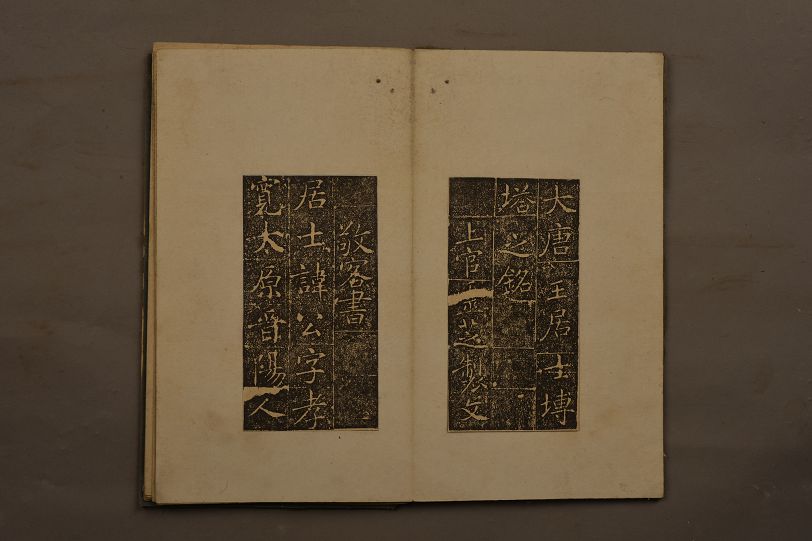 大唐王居士塼
塔之銘
上官靈芝製文
敬客書
居士諱公字孝
寬太原晉陽人